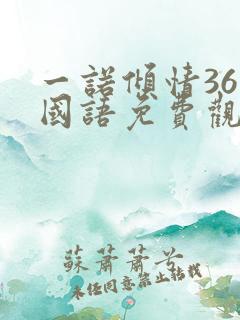 一諾傾情36
國語免費觀
蘇蕭蕭兮
未經同意禁止轉載